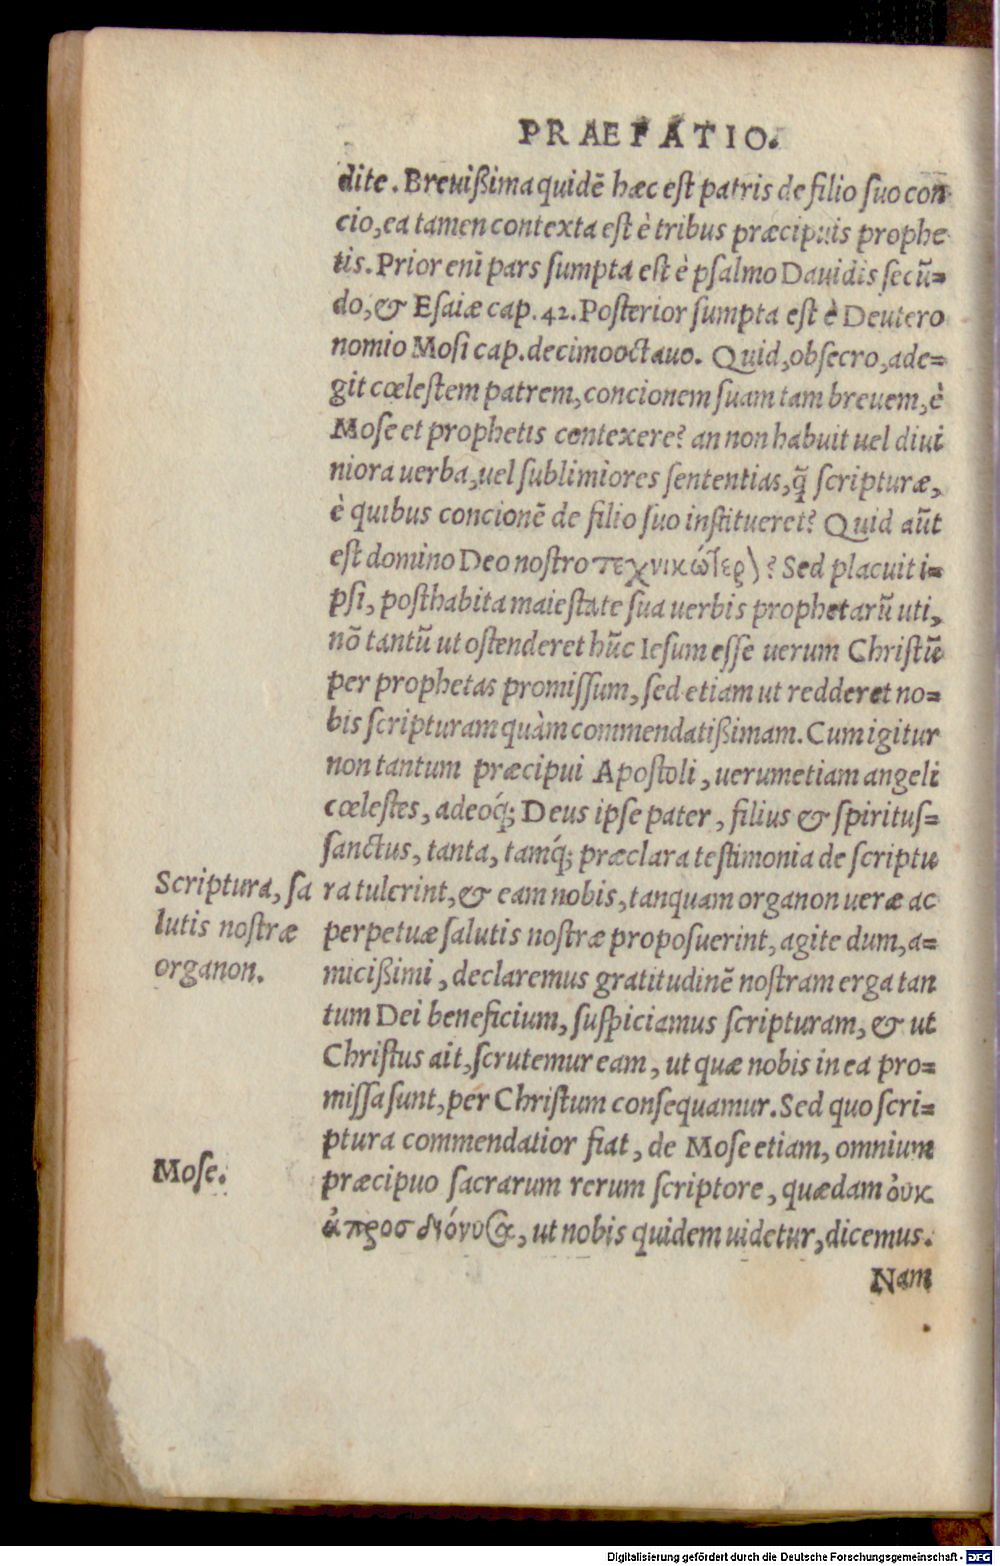 PRAEFATIO.
dite. Breuißima quidē hæc est patris de filio suo con
cio, ea tamen contexta est è tribus præcipuis prophe
tis. Prior enī pars sumpta est è psalmo Dauidis secū=
do, & Esaiæ cap. 42. Posterior sumpta est è Deutero
nomio Mosi cap. decimooctauo. Quid, obsecro, ade=
git cœlestem patrem, concionem suam tam breuem, è
Mose et prophetis contexere? an non habuit uel diui
niora uerba, uel sublimiores sententias, q̃ scripturæ,
è quibus concionē de filio suo institueret? Quid aūt
est domino Deo nostro τεχνικώτερον? Sed placuit i=
psi, posthabita maiestate sua uerbis prophetarū uti,
nō tantū ut ostenderet hūc Iesum esse uerum Christū
per prophetas promissum, sed etiam ut redderet no=
bis scripturam quàm commendatißimam. Cum igitur
non tantum præcipui Apostoli, uerumetiam angeli
cœlestes, adeoq́; Deus ipse pater, filius & spiritus=
sanctus, tanta, tamq́; præclara testimonia de scriptu
Scriptura, sa
lutis nostræ
organon.
ra tulerint, & eam nobis, tanquam organon ueræ ac
perpetuæ salutis nostræ proposuerint, agite dum, a=
micißimi, declaremus gratitudinē nostram erga tan
tum Dei beneficium, suspiciamus scripturam, & ut
Christus ait, scrutemur eam, ut quæ nobis in ea pro=
missa sunt, per Christum consequamur. Sed quo scri=
ptura commendatior fiat, de Mose etiam, omnium
Mose.
præcipuo sacrarum rerum scriptore, quædam ὀυκ
ἀπροσδιόνυσα, ut nobis quidem uidetur, dicemus.
Nam
Digitalisierung gefördert durch die Deutsche Forschungsgemeinschaft - DFG